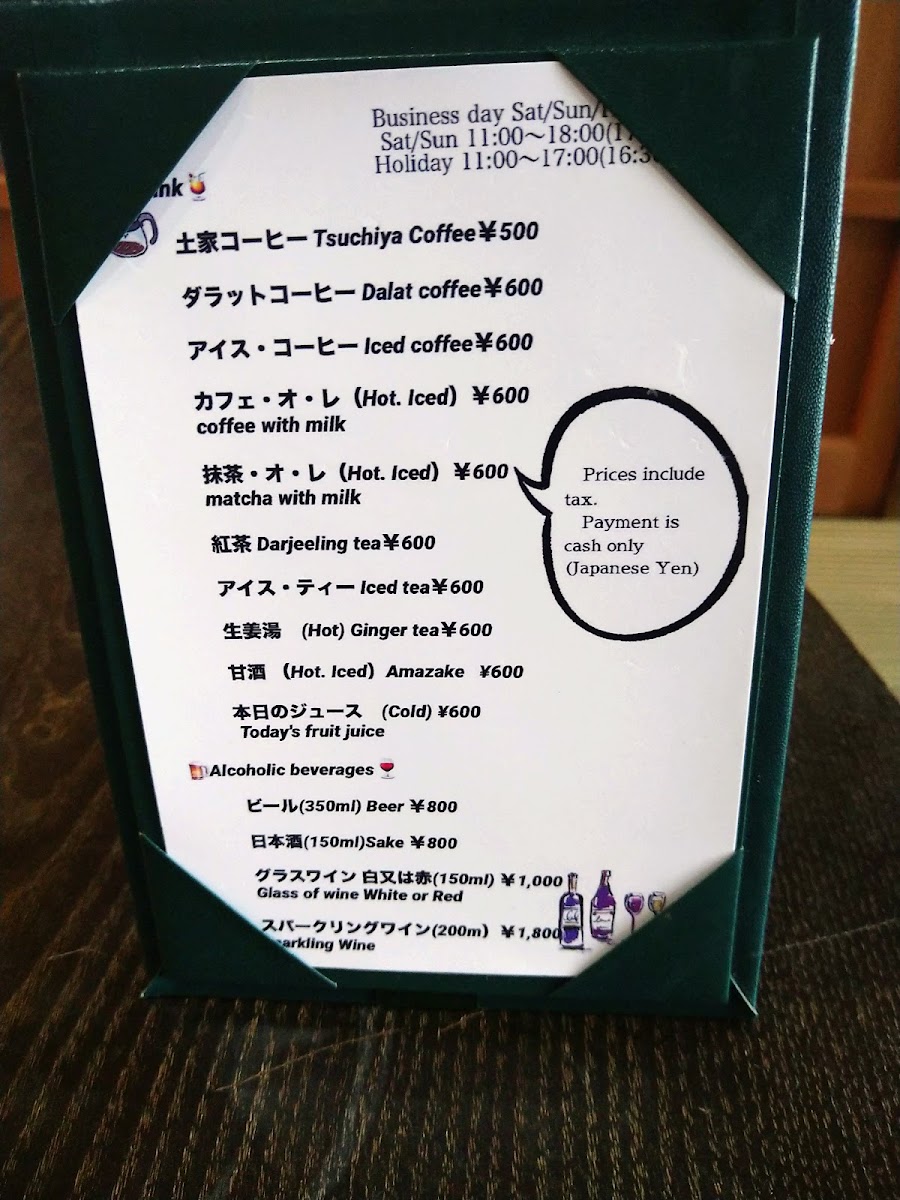 Business day Sat/Sun/
Sat/Sun 11:00～18:00(17
Holiday 11:00～17:00(16:3
土家コーヒー Tsuchiya Coffee¥500
ダラットコーヒー Dalat coffee¥600
アイス・コーヒー Iced coffee¥600
カフェ・オ・レ（Hot. Iced）¥600
coffee with milk
抹茶・オ・レ（Hot. Iced）¥600
matcha with milk
Prices include
tax.
Payment is
cash only
(Japanese Yen)
紅茶 Darjeeling tea¥600
アイス・ティー Iced tea¥600
生姜湯 (Hot) Ginger tea¥600
甘酒 （Hot. Iced）Amazake ¥600
本日のジュース (Cold) ¥600
Today's fruit juice
Alcoholic beverages
ビール(350ml) Beer ¥800
日本酒(150ml)Sake ¥800
グラスワイン 白又は赤(150ml) ¥1,000
Glass of wine White or Red
スパークリングワイン(200m）¥1,800
arkling Wine